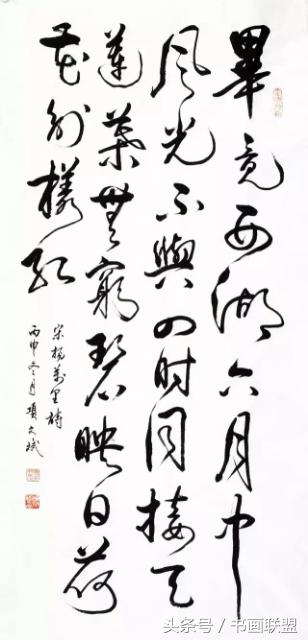 畢竟西湖六月中
風光不與四时同接天
蓮葉無窮碧映日荷
花別樣紅
宋楊萬里詩
丙申冬月項文斌
头条号 / 书画联盟